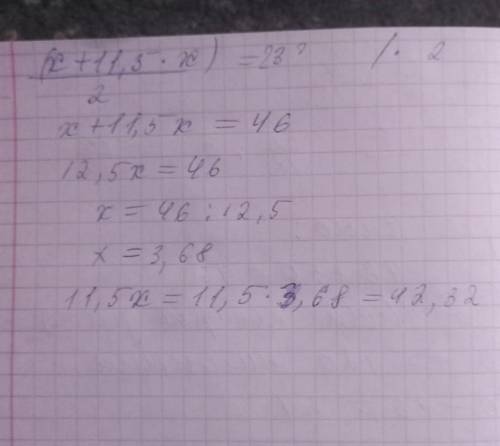 (x+11,5·x)/2 =23? /· 2
x+11,5x = 46
12,5x = 46
x = 46 : 12,5
x = 3,68
11,5x = 11,5·3,68 = 42,32